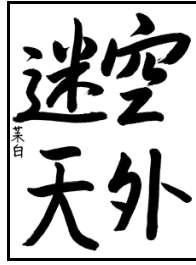 空外
迷天
白